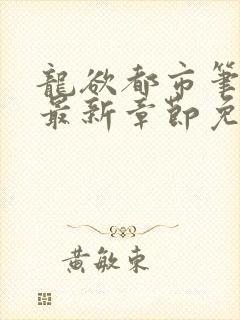 龍欲都市筆
最新章節免
黃敏東